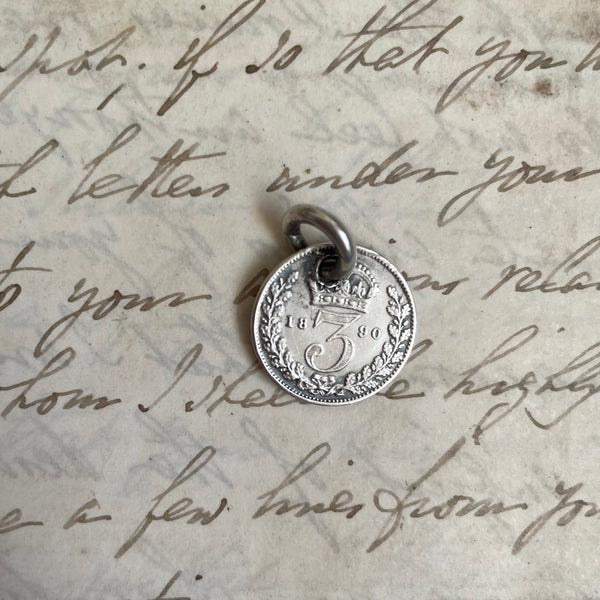 spot; if so that you
letters under your
to your rela
whom I shall be highly
a few lines from you
18 3 90